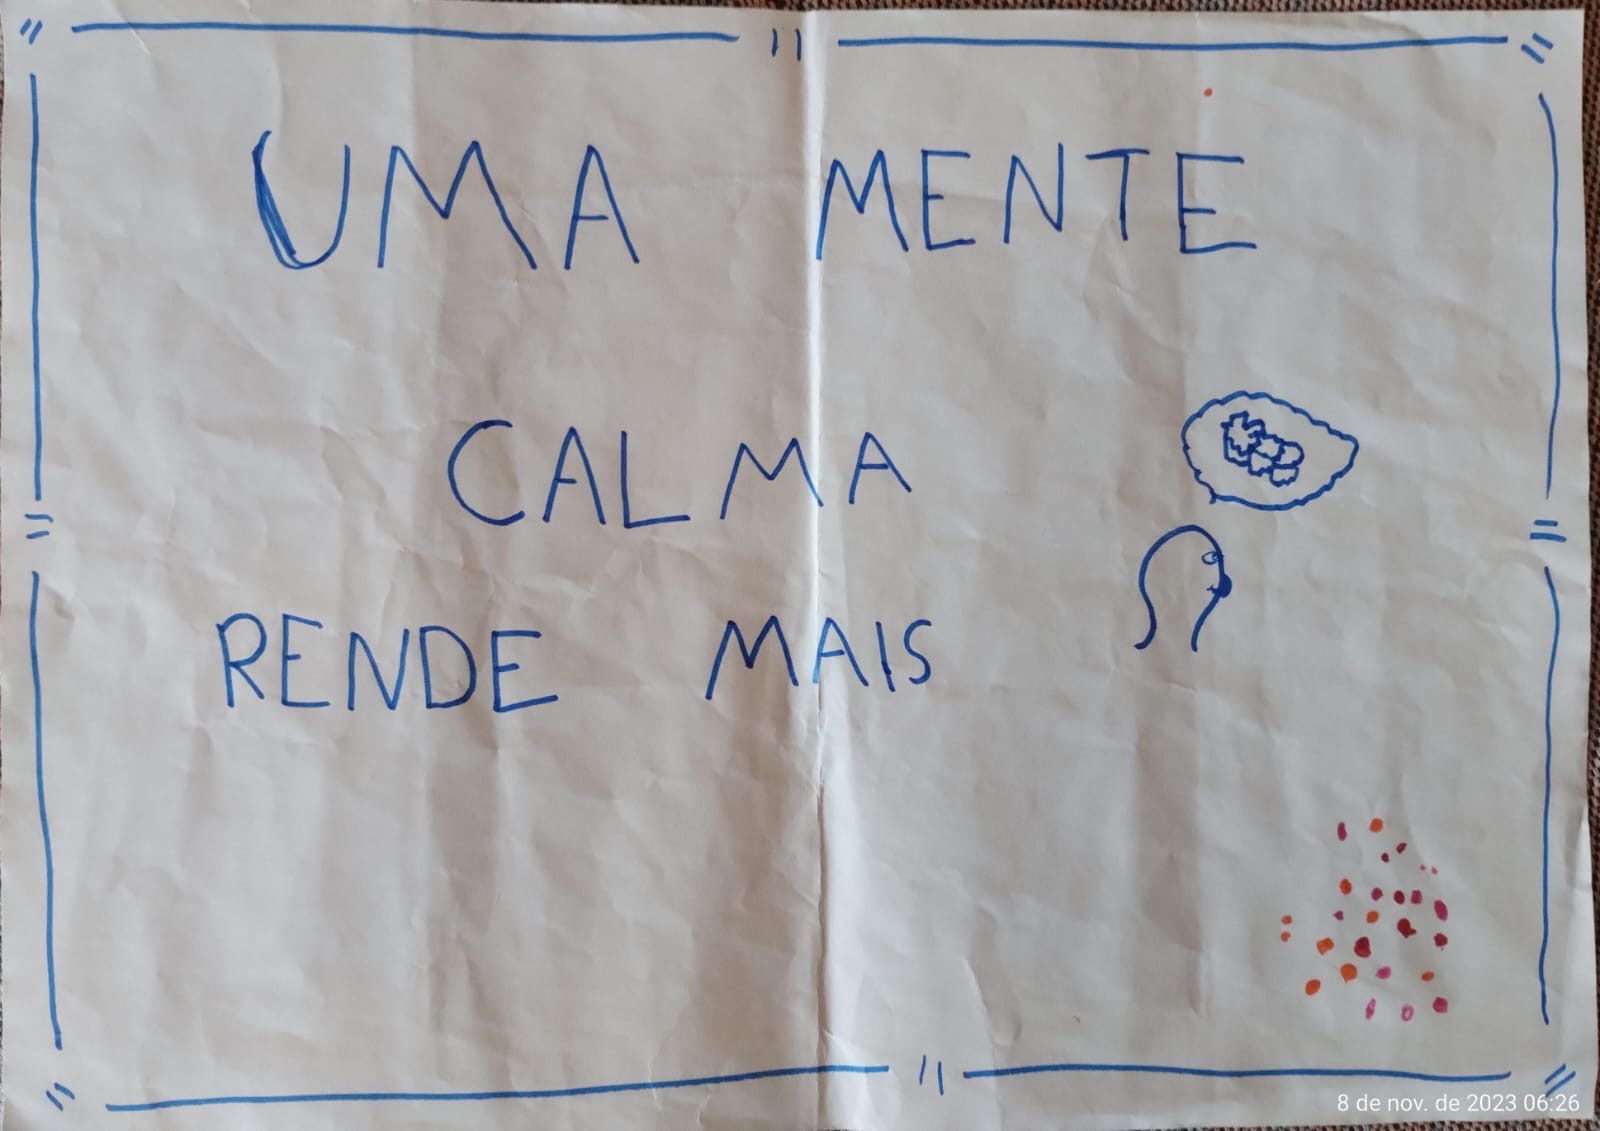 UMA MENTE
CALMA
RENDE MAIS
8 de nov. de 2023 06:26